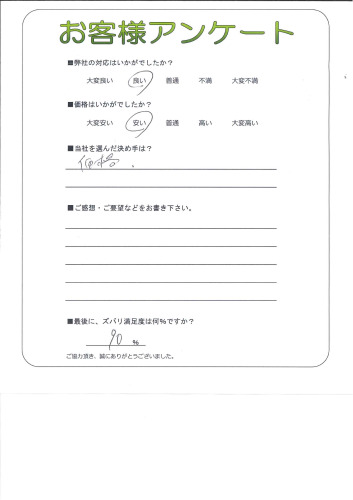 お客様アンケート
■弊社の対応はいかがでしたか？
大変良い 良い 普通 不満 大変不満
■価格はいかがでしたか？
大変安い 安い 普通 高い 大変高い
■当社を選んだ決め手は？
価格.
■ご感想・ご要望などをお書き下さい。
■最後に、ズバリ満足度は何%ですか？
90 %
ご協力頂き、誠にありがとうございました。